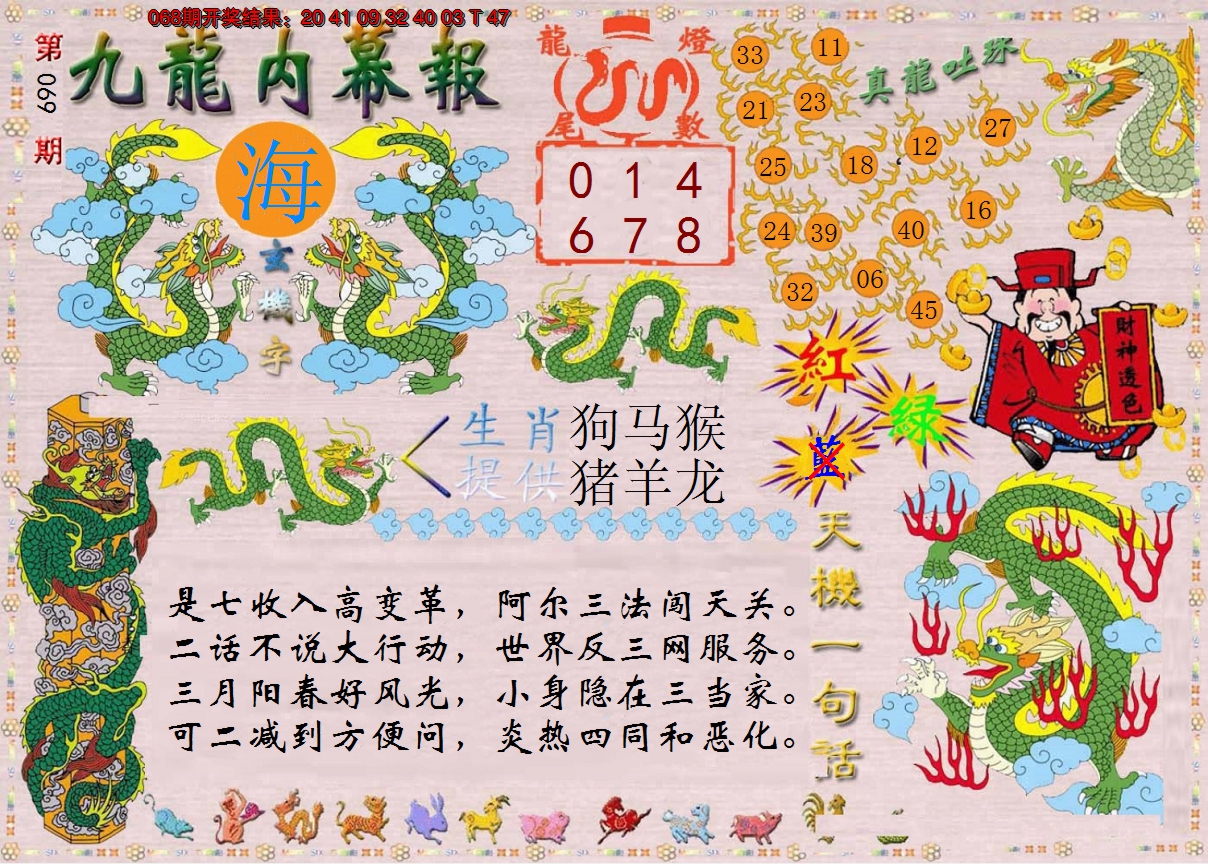 068期开奖结果：20 41 09 32 40 03 T 47
第
069
期
九龍内幕報
海
玄
機
字
龍
燈
尾
數
0 1 4
6 7 8
真龍吐珠
33
11
21
23
12
27
25
18
16
24
39
40
32
06
45
紅
綠
藍
財神透色
生肖 狗马猴
提供 猪羊龙
是七收入高变革，阿尔三法闯天关。
二话不说大行动，世界反三网服务。
三月阳春好风光，小身隐在三当家。
可二减到方便问，炎热四同和恶化。
天機一句話